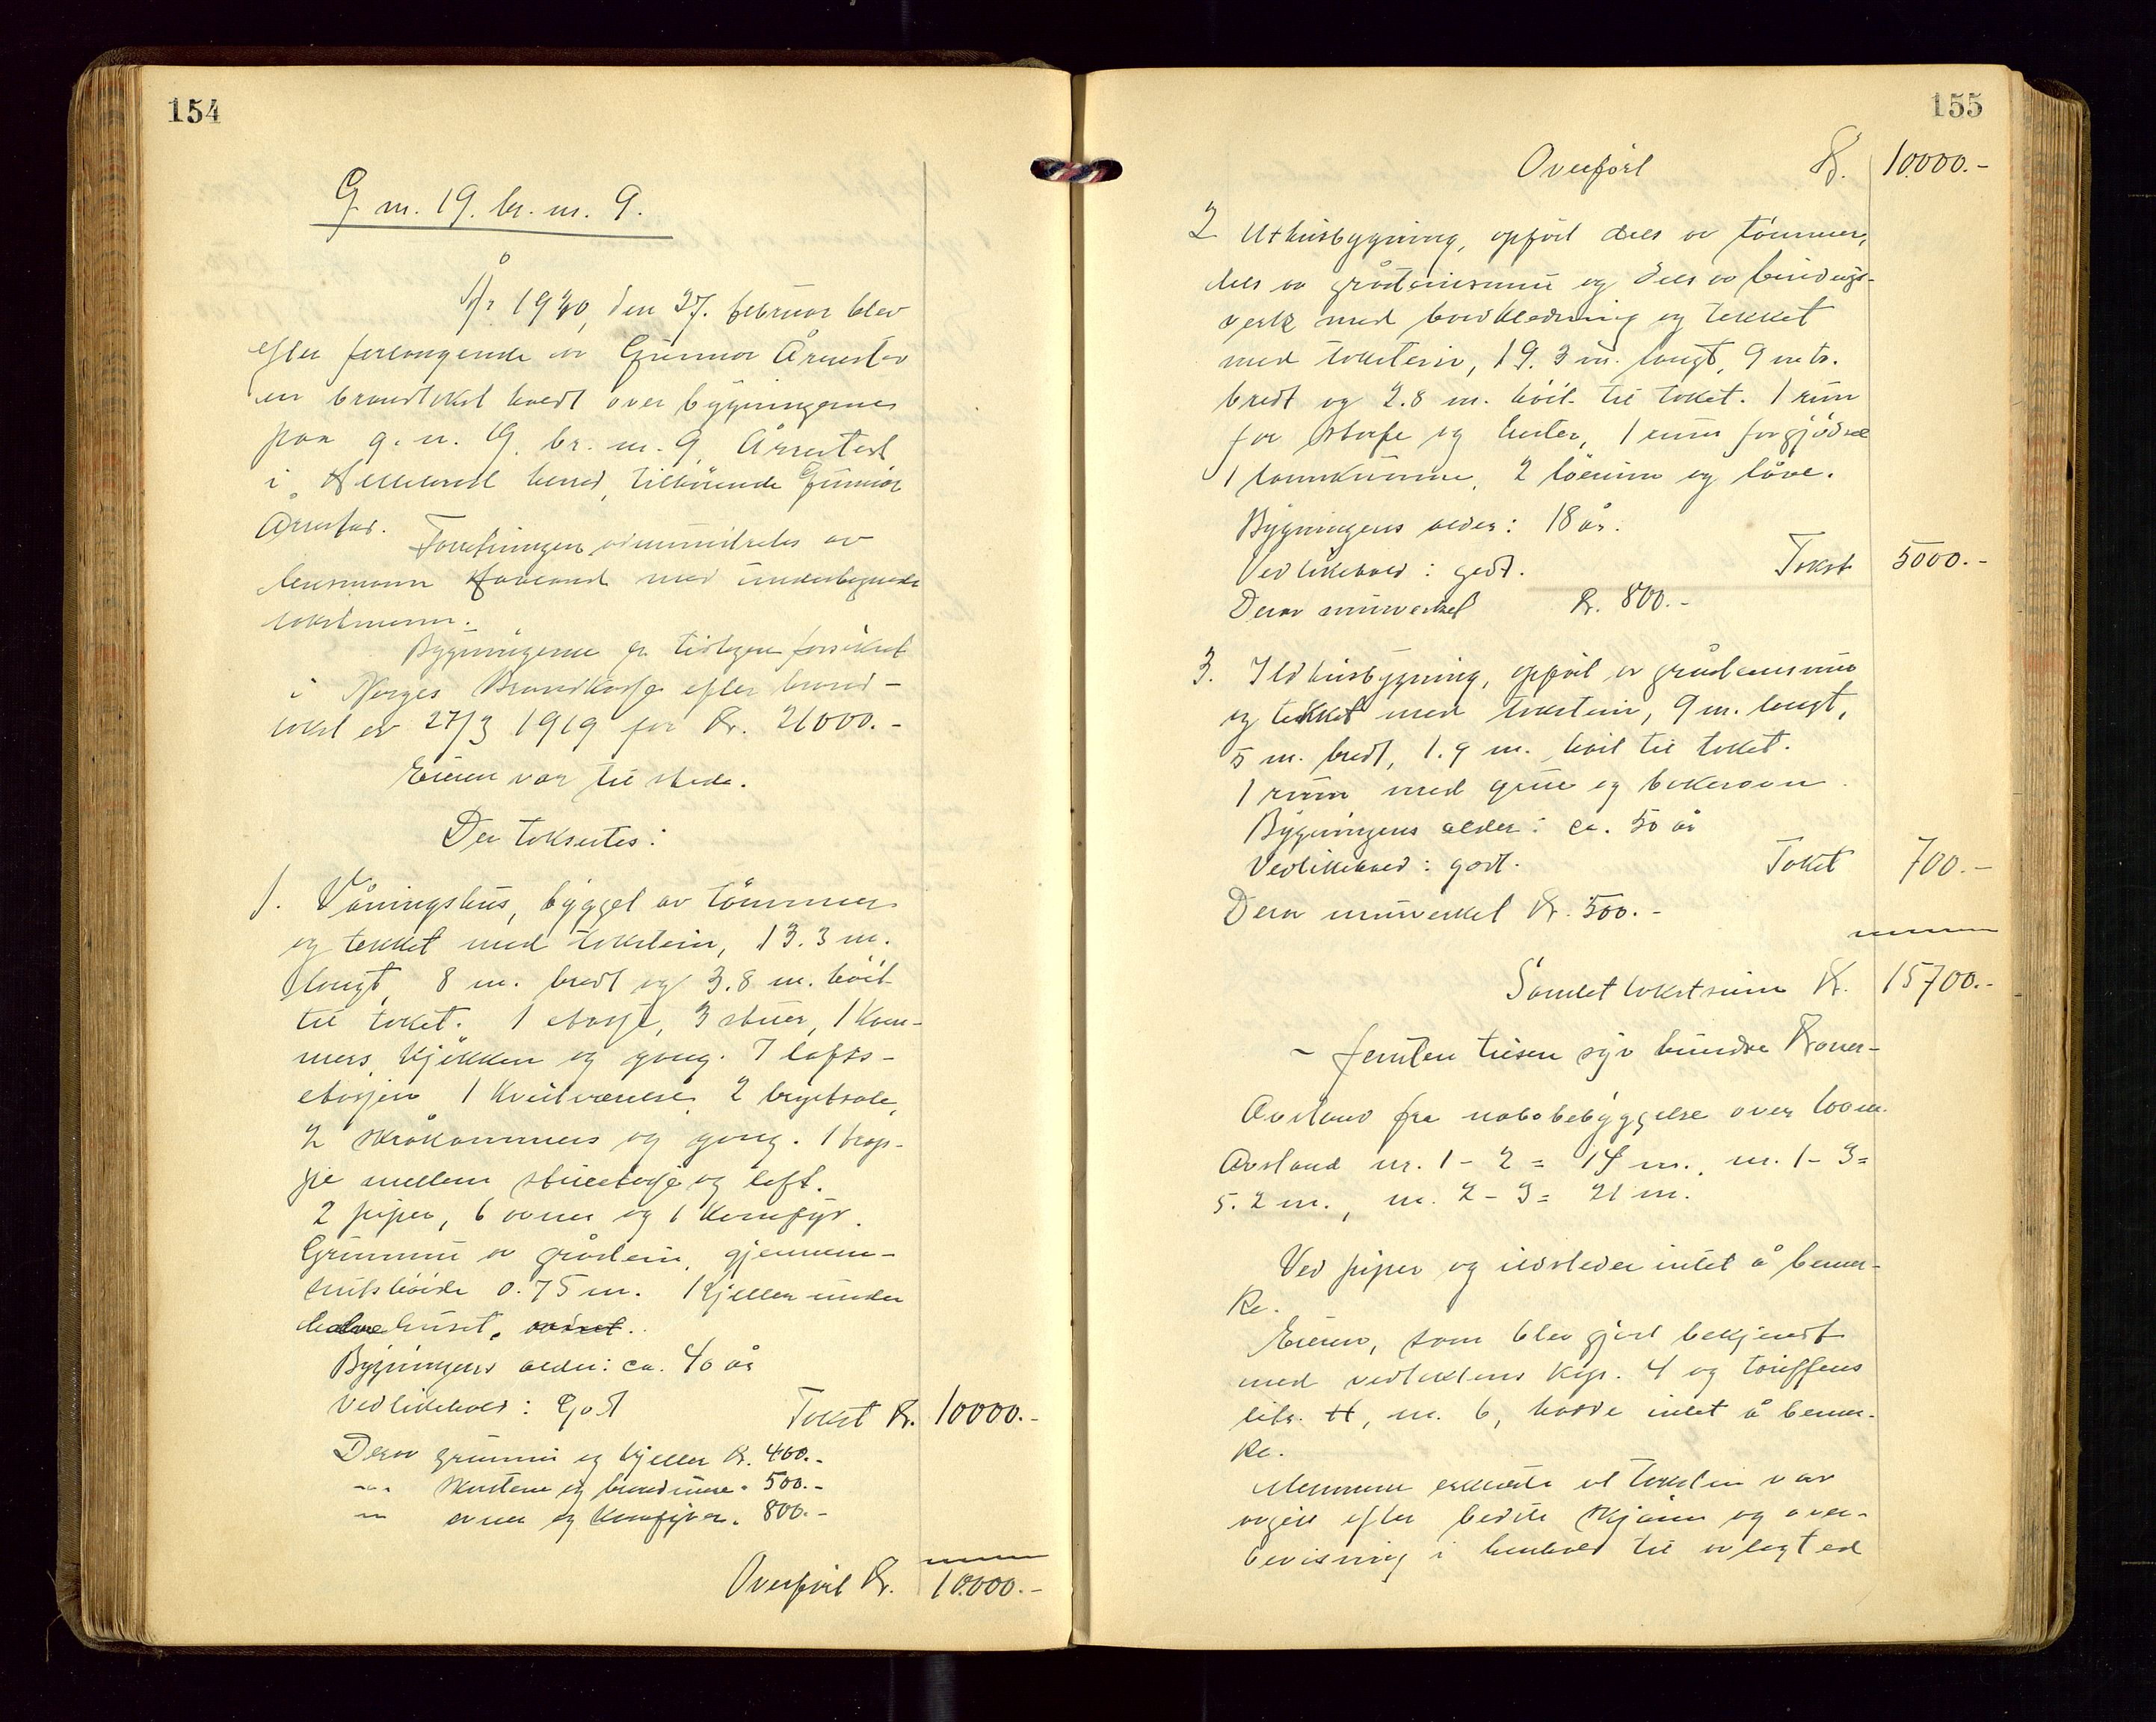 154
G. nr. 19. br. nr. 9.
År 1930, den 27. februar blev
efter forlangende av Gunnar Årrestad
en brandtakst holdt over bygningerne
paa g. nr. 19. br. nr. 9, Årrestad
i Helleland herred, tilhörende Gunnar
Årrestad.
Forretningen administreres av
lensmann Haaland med undertegnede
takstmenn.
Bygningerne er tidligere forsikret
i Norges Brandkasse efter brand-
takst av 27/3 1919 for Kr. 21000.-
Eieren var til stede.
Der taksertes:
1. Våningshus, bygget av tömmer
og tekket med takstein, 13.3 m.
langt, 8 m. bredt og 3.8 m. höit
til taket. 1 etasje, 3 stuer, 1 kam-
mers, kjökken og gang. I lofts-
etasjen 1 kvistværelse, 2 brystsale,
2 skråkammers og gang. 1 trap-
pe mellem stueetasje og loft.
2 piper, 6 ovner og 1 komfyr.
Grunnmur av gråstein, gjennem-
snitshöide 0.75 m. Kjeller under
halve huset.
Bygningens alder: ca. 40 år
Vedlikehold: Godt
Takst Kr. 10000.-
Derav grunnmur og kjeller Kr. 400.-
-"- skorstene og brandmure " 500.-
-"- ovner og komfyrer " 800.-
Overfört Kr. 10.000.-
155
Overfört Kr. 10.000.-
2 Uthusbygning, opfört dels av tömmer,
dels av gråstensmur og dels av bindings-
verk med bordkledning og tekket
med takstein, 19.3 m. langt, 9 mtr.
bredt og 2.8 m. höit til taket. 1 rum
for storfe og hester, 1 rum for gjödsel
1 landkumme, 2 löerum og låve.
Bygningens alder: 18 år.
Vedlikehold: godt.
Takst 5000.-
Derav murverket Kr. 800.-
3. Ildhusbygning, opfört av gråstensmur
og tekket med takstein, 9 m. langt,
5 m. bredt, 1.9 m. höit til taket.
1 rum med grue og bakerovn.
Bygningens alder: ca. 50 år
Vedlikehold: godt.
Takst 700.-
Derav murverket Kr. 500.-
Samlet takstsum Kr. 15700.-
- femten tusen syv hundre Kroner-
Avstand fra nabobebyggelse over 100 m.
Avstand nr. 1 - 2 = 14 m., nr. 1 - 3 =
5.2 m., nr. 2 - 3 = 21 m.
Ved piper og ildsteder intet å bemer-
ke.
Eieren, som blev gjort bekjendt
med vedtektens kap. 4 og tariffens
litr. H, nr. 6, hadde intet å bemer-
ke.
Mennene erklærte at taksten var
avgitt efter bedste skjönn og over-
bevisning i henhold til avlagt ed